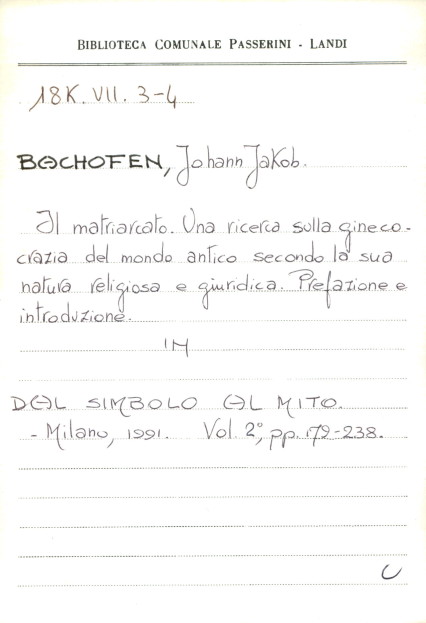 BIBLIOTECA COMUNALE PASSERINI - LANDI
18K. VII. 3-4
BACHOFEN, Johann Jakob.
Il matriarcato. Una ricerca sulla gineco-
crazia del mondo antico secondo la sua
natura religiosa e giuridica. Prefazione e
introduzione.
IN
DAL SIMBOLO AL MITO.
- Milano, 1991. Vol. 2°, pp. 179-238.
U